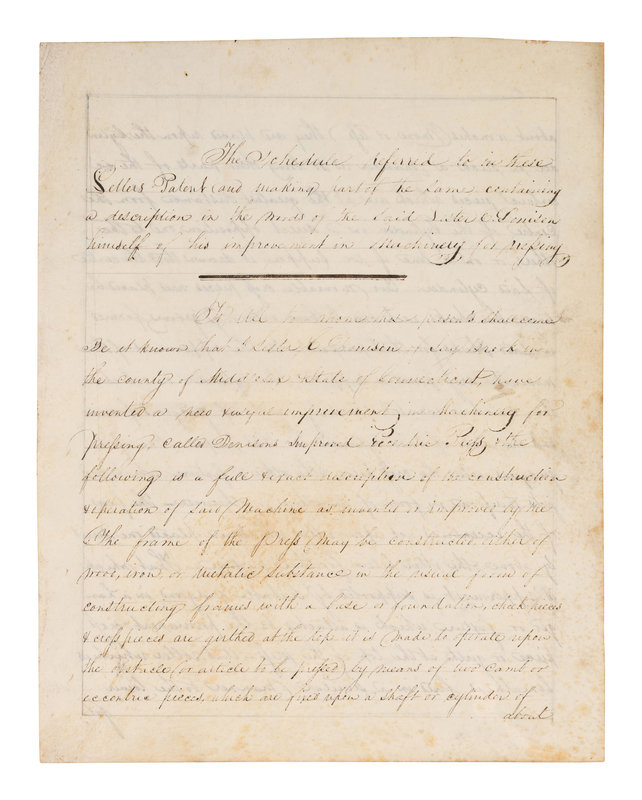 The Schedule referred to in these
Letters Patent (and making part of the same containing
a description in the words of the said Lester E. Denison
himself of his improvement in Machinery, for Pressing,
To all to whom these presents shall come
Be it known that I Lester E. Denison of Say Brook in
the county of Middlesex & State of Connecticut, have
invented a new & improvement, in Machinery for
Pressing, called Denisons Improved Eccentric Press, & the
following is a full & exact description of the construction
& operation of said Machine as invented or improved by me
The frame of the Press may be constructed either of
wood, iron, or metalic substance in the usual form of
constructing frames with a base or foundation, cheek pieces
& cross pieces are girthed at the top it is made to operate upon
the obstacle (or article to be pressed) by means of two Camb or
eccentric pieces, which are fixed upon a shaft or cylinder of
about